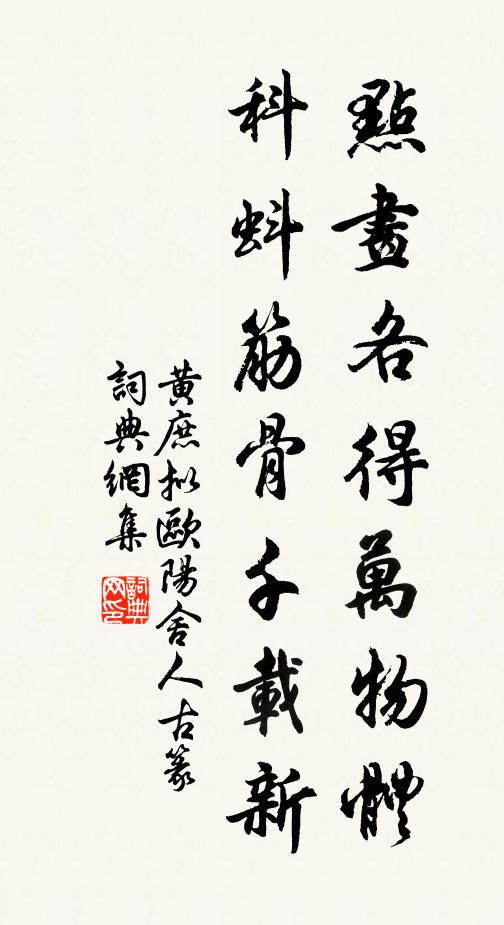 點畫各得萬物體
科蚪筋骨千載新
黃庶拟歐陽舍人古篆
詞典網集
詞典网印